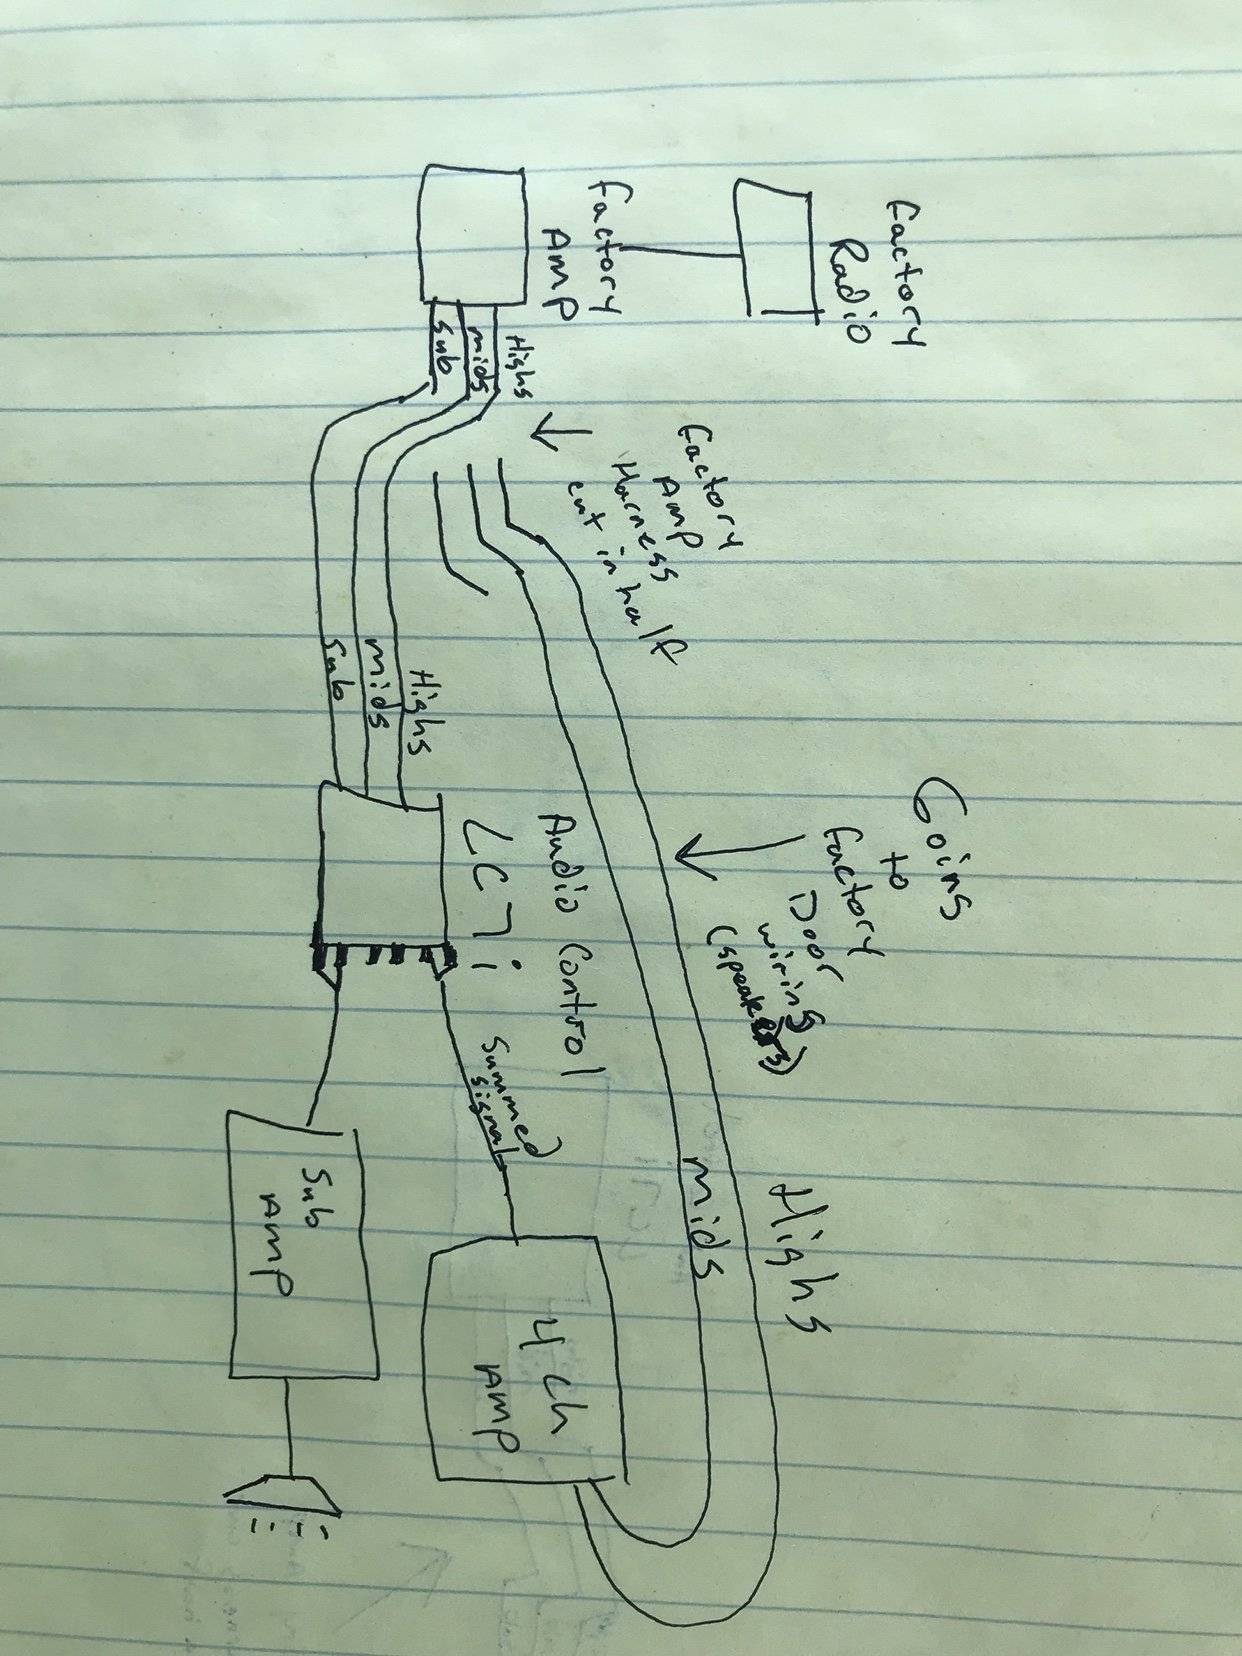 Factory
Radio
Factory
AMP
Highs
mids
Sub
Factory
AMP
Harness
cut in half
Highs
mids
Sub
Going
to
Factory
Door
wiring
(speakers)
Audio Control
LC7i
Summed
signal
Highs
mids
4 Ch
AMP
Sub
AMP